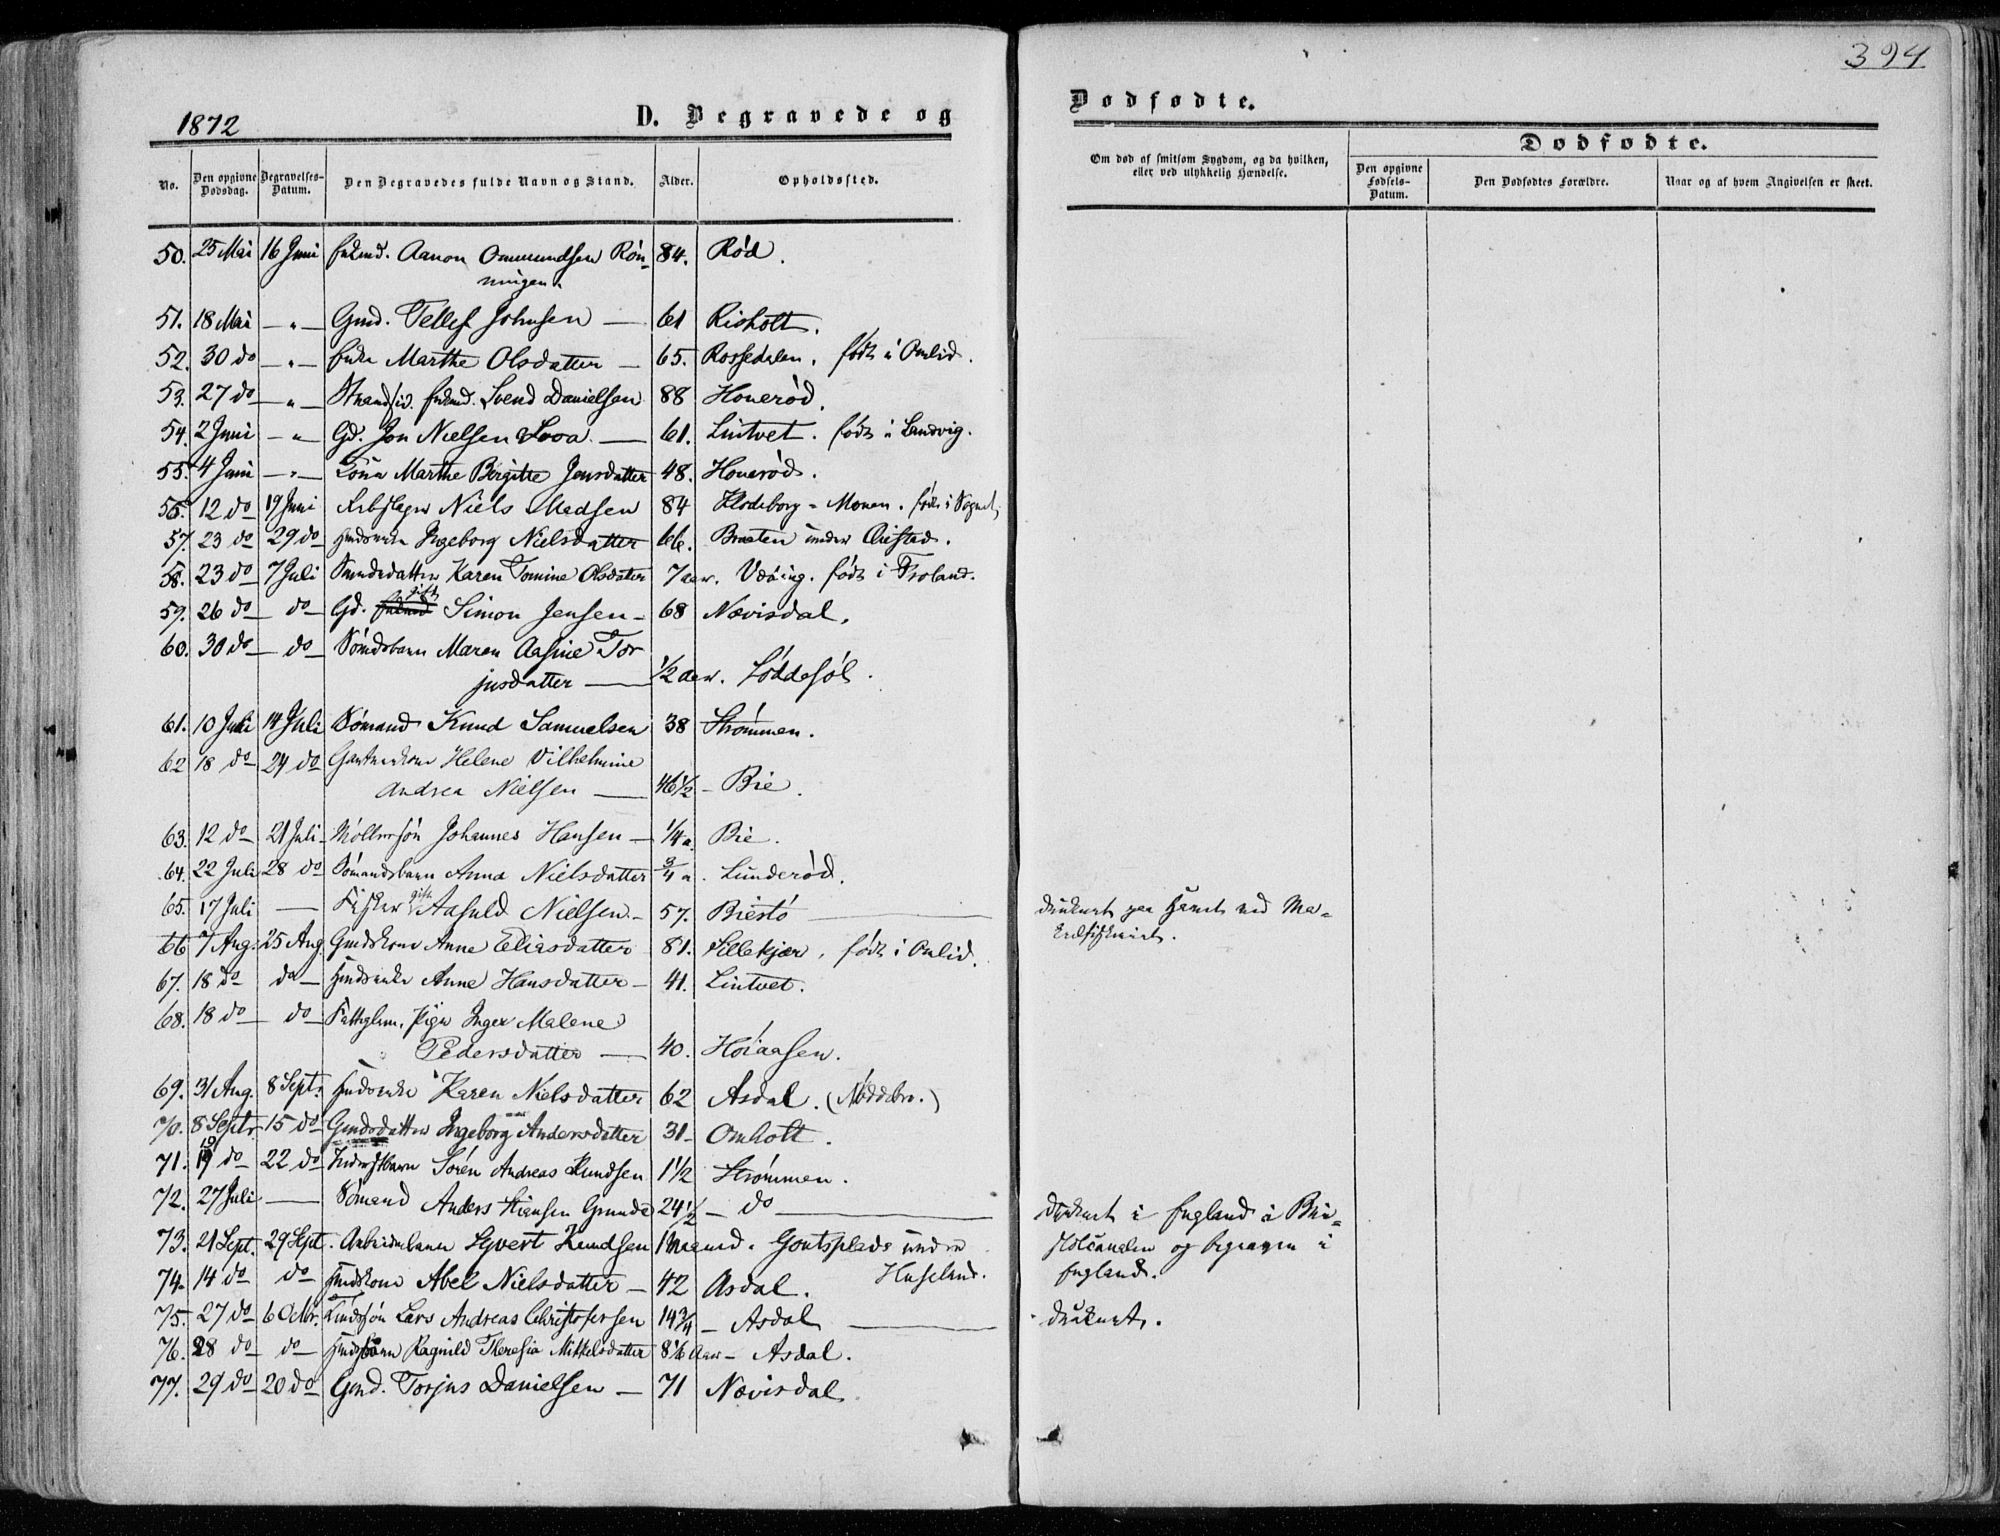 394
1872
D. Begravede og
Dødfødte.
No.
Den opgivne Dødsdag.
Begravelses-Datum.
Den Begravedes fulde Navn og Stand.
Alder.
Opholdssted.
Om død af smitsom Sygdom, og da hvilken, eller ved ulykkelig Hændelse.
Dødfødte.
Den opgivne Fødsels-Datum.
Den Dødfødtes Forældre.
Naar og af hvem Angivelsen er skeet.
50. 25 Mai 16 Juni Aanon Ommundsen Røn- 84. Rød.
ningen
51. 18 Mai — „ — Gmd. Tellef Johnsen — 61 Risholt.
52. 30 do — „ — Enke Marthe Olsdatter — 65. Rossedalen. født i Omlid.
53. 27 do — „ — Svend Danielsen 88 Houerød.
54. 2 Juni — „ Gd. Jon Nielsen — 61. Lintvet. født i Landvig.
55. 4 Juni — „ — Kona Marthe Birgitte Jensdatter 48. Houerød.
56. 12 do 19 Juni Niels Madsen 84 Klodeborg - Monen. født i Sognet,
57. 23 do 29 do Ingeborg Nielsdatter 66. Braaten under
58. 23 do 7 Juli Karen Tomine Olsdatter 7 aar. født i Froland.
59. 26 do do Gd. gift Simon Jensen — 68 Nævisdal.
60. 30 do — do — Sømdsbarn Maren Aasine Tor
jusdatter — 1/2 aar. Løddesøl.
61. 10 Juli 14 Juli Sømand Knud Samuelsen 38 Strømmen.
62 18 do 24 do Gartnerkone Helene Vilhelmine
Andrea Nielsen — 46 1/2 - Bie.
63. 12 do 21 Juli Møllersøn Johannes Hansen — 1/4 a. Bie.
64. 22 Juli 28 do Sømandsbarn Anna Nielsdatter 3/4 a. Lunderød.
65. 17 Juli — Fisker gift Aasuld Nielsen — 57. Biestø — druknet paa Havet ved Ma-
krelfiskeriet.
66 7 Aug. 25 Aug. Gmdskone Anne Eliasdatter 81. Sillekjær, født i Omlid.
67. 18 do do — Anne Hansdatter — 41. Lintvet.
68. 18 do — do — Fattiglem, Pige Inger Malene
Pedersdatter — 40. Høiaasen.
69. 31 Aug. 8 Septr. Karen Nielsdatter 62 Asdal. (Nøddebro.)
70. 8 Septr. 15 do Gmdsdatter Ingeborg Andersdatter 31 - Omholt.
71. 19 do 22 do Søren Andreas Knudsen 1 1/2 Strømmen.
72. 27 Juli — Sømand Anders 24 1/2 — do — druknet i England i Bri-
stolcanalen og begraven i
England.
73. 21 Sept. 29 Sept. Arbeidsbarn Syvert Knudsen 1 Maaned. under
Huseland.
74. 14 do do Abel Nielsdatter — 42 Asdal.
75. 27 do 6 Octbr. Lars Andreas Christofersen 14 3/4 — Asdal — druknet.
76. 28 do do Ragnild Theresia Mikkelsdatter 8 1/6 Aar — Asdal.
77. 29 do 20 do Gmd. Torjus Danielsen — 71 Nævisdal